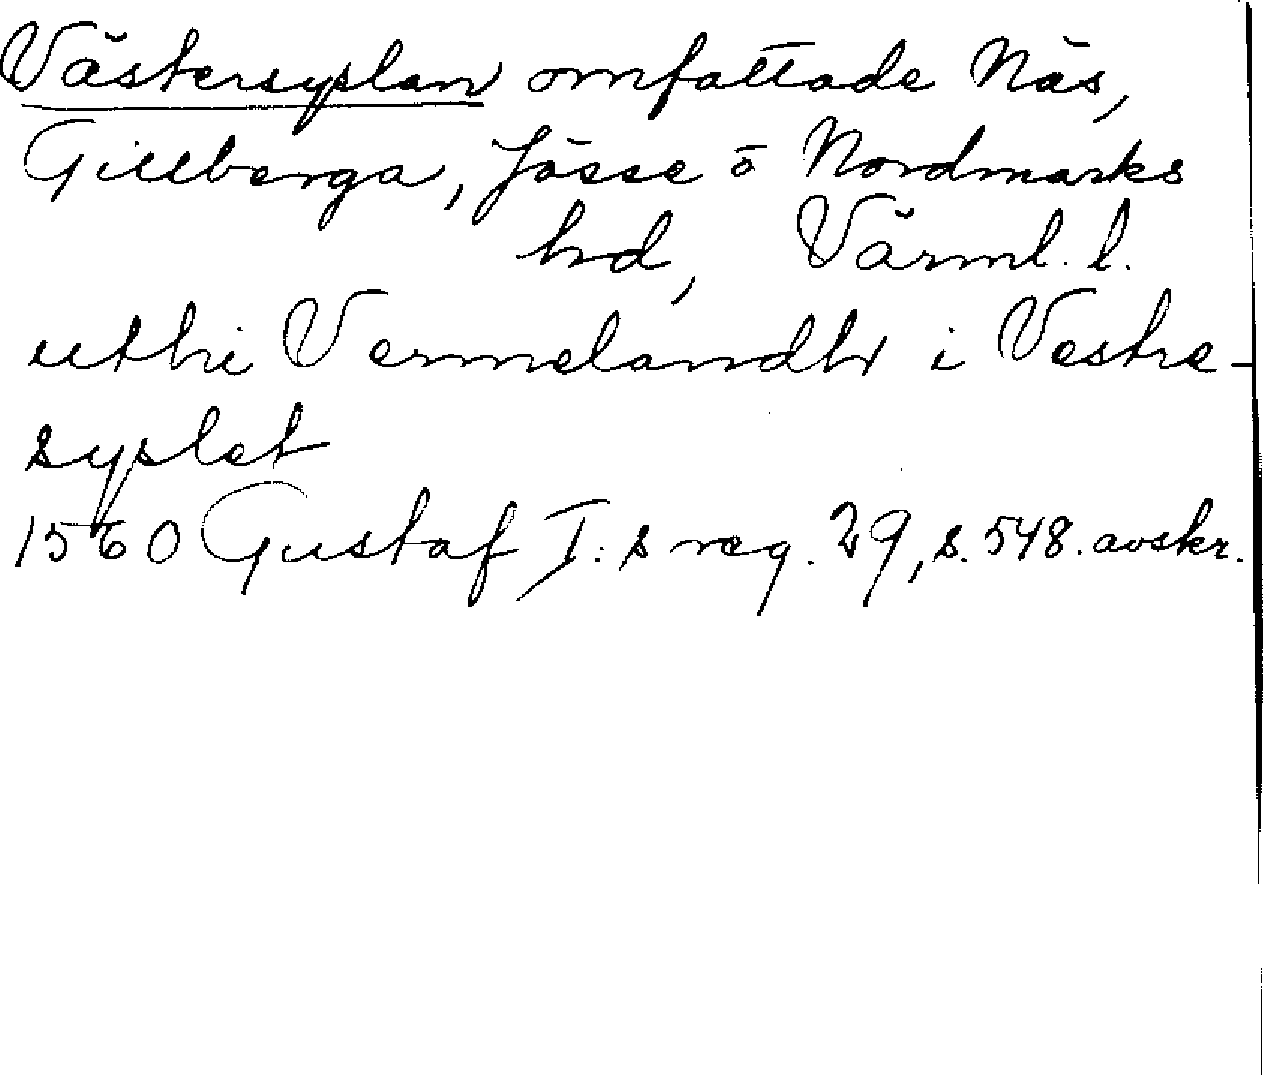 Västersyslan omfattade Näs,
Gillberga, Jösse o Nordmarks
hrd, Värml. l.
uthi Vermelandh i Vestre-
syslet
1560 Gustaf I:s reg. 29, s. 548. avskr.